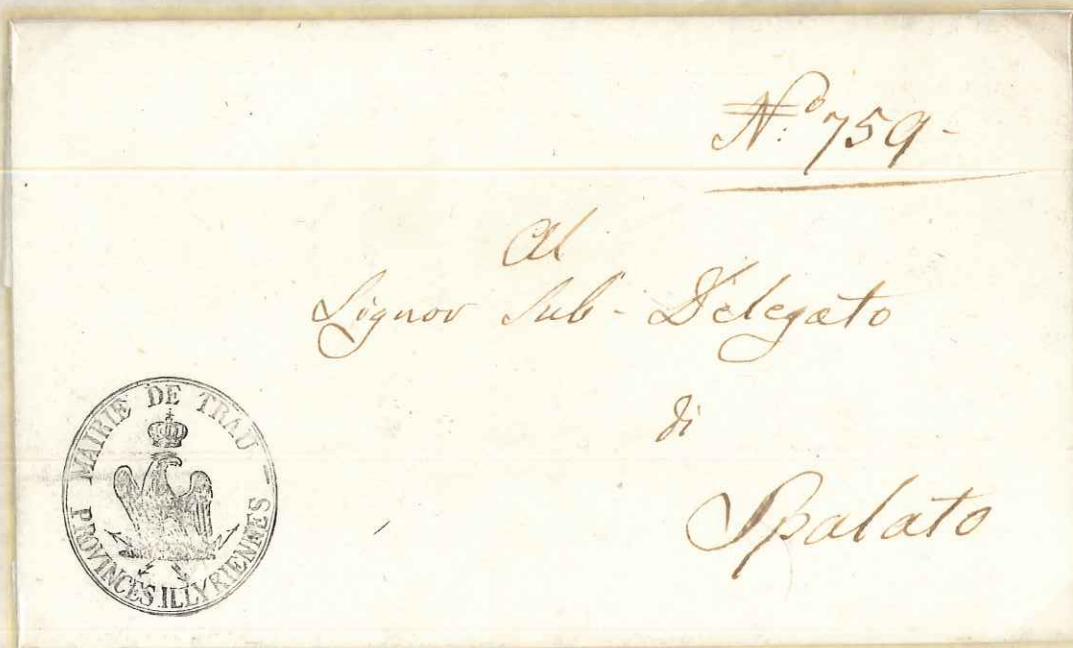 N:º 759-
Al
Signor Sub-Delegato
di
Spalato
MAIRIE DE TRAU
PROVINCES ILLYRIENNES